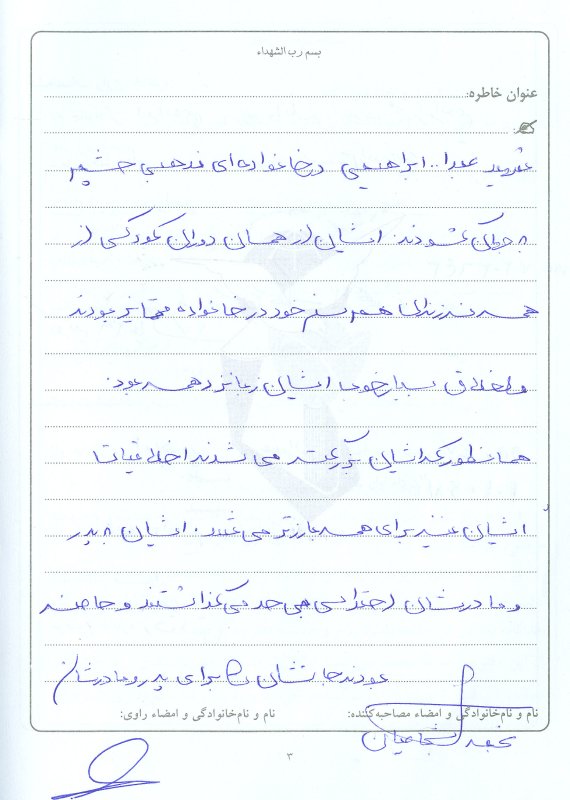 بسم رب الشهداء
عنوان خاطره:
شهید عبدا.. ابراهیمی در خانواده‌ای مذهبی چشم
به جهان گشودند. ایشان از همان دوران کودکی از
همه فرزندان هم سن خود در خانواده متمایز بودند
و اخلاق بسیار خوب ایشان زبانزد همه بود.
همانطور که ایشان بزرگتر می شدند اخلاقیات
ایشان نیز برای همه بارزتر می شد. ایشان به پدر
و مادرشان احترام می گذاشتند و حاضر
بودند جانشان را برای پدر و مادرشان
نام و نام‌خانوادگی و امضاء مصاحبه‌کننده:
نام و نام‌خانوادگی و امضاء راوی:
۳